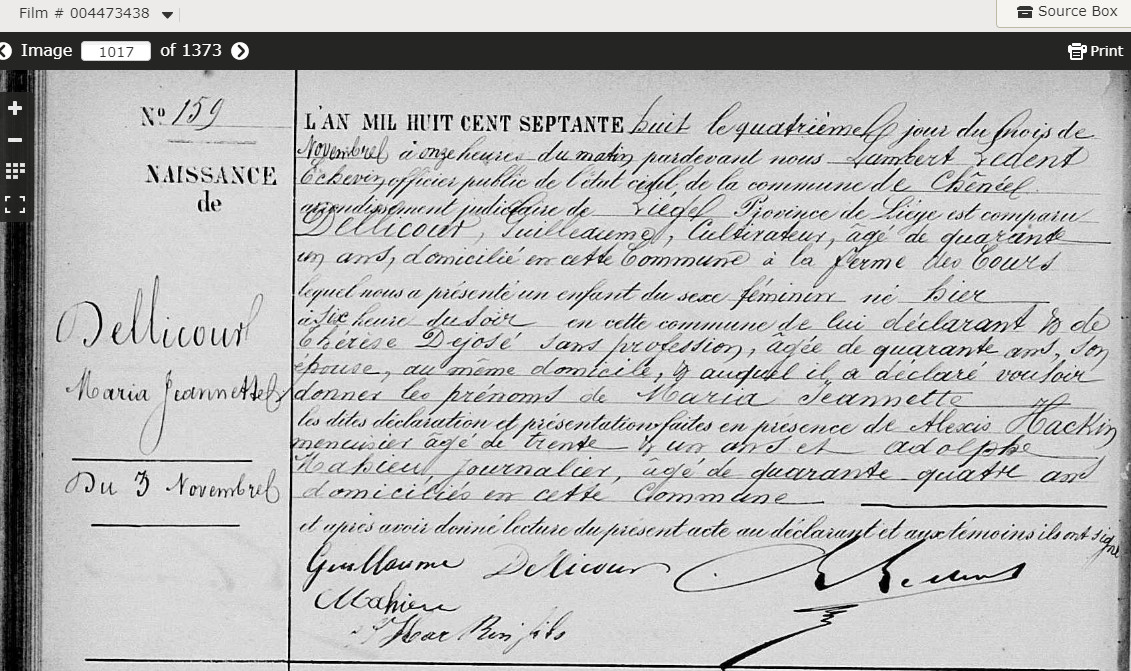 Film # 004473438
Source Box
Image 1017 of 1373
Print
Nº 159
NAISSANCE
de
Dellicour
Maria Jeannette
Du 3 Novembre
L'AN MIL HUIT CENT SEPTANTE huit le quatrième jour du mois de
Novembre à onze heures du matin pardevant nous Lambert Ledent
Echevin, officier public de l'état civil de la commune de Chênée
arrondissement judiciaire de Liège Province de Liège est comparu
Dellicour, Guilleaume, Cultivateur, âgé de quarante
un ans, domicilié en cette Commune à la ferme des Cours
lequel nous a présenté un enfant du sexe féminin né hier
à six heure du soir en cette commune de lui déclarant & de
Thérèse Dejosé sans profession, âgée de quarante ans, son
épouse, au même domicile, & auquel il a déclaré vouloir
donner les prénoms de Maria Jeannette
les dites déclaration et présentation faites en présence de Alexis Hackin
menuisier âgé de trente & un ans et adolphe
Mahieu, journalier, âgé de quarante quatre ans
domiciliés en cette Commune
et après avoir donné lecture du présent acte au déclarant et aux témoins ils ont signé
Guillaume Dellicour
Mahieu
Hackin fils